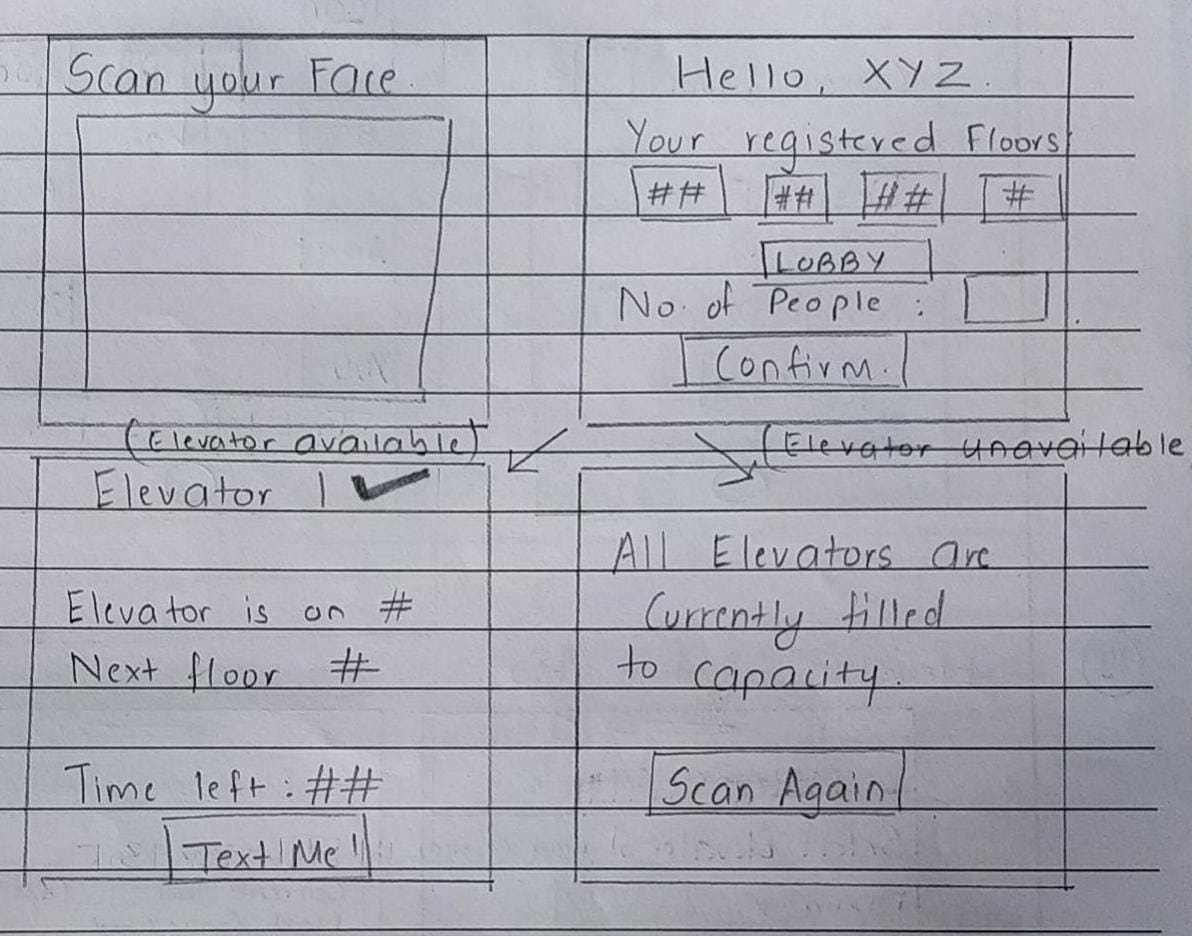 Scan your Face.
Hello, XYZ.
Your registered Floors
## ## ## #
LOBBY
No. of People :
Confirm.
(Elevator available)
(Elevator unavailable
Elevator 1 ✔
Elevator is on #
Next floor #
Time left : ##
Text Me!
All Elevators are
Currently filled
to capacity.
Scan Again